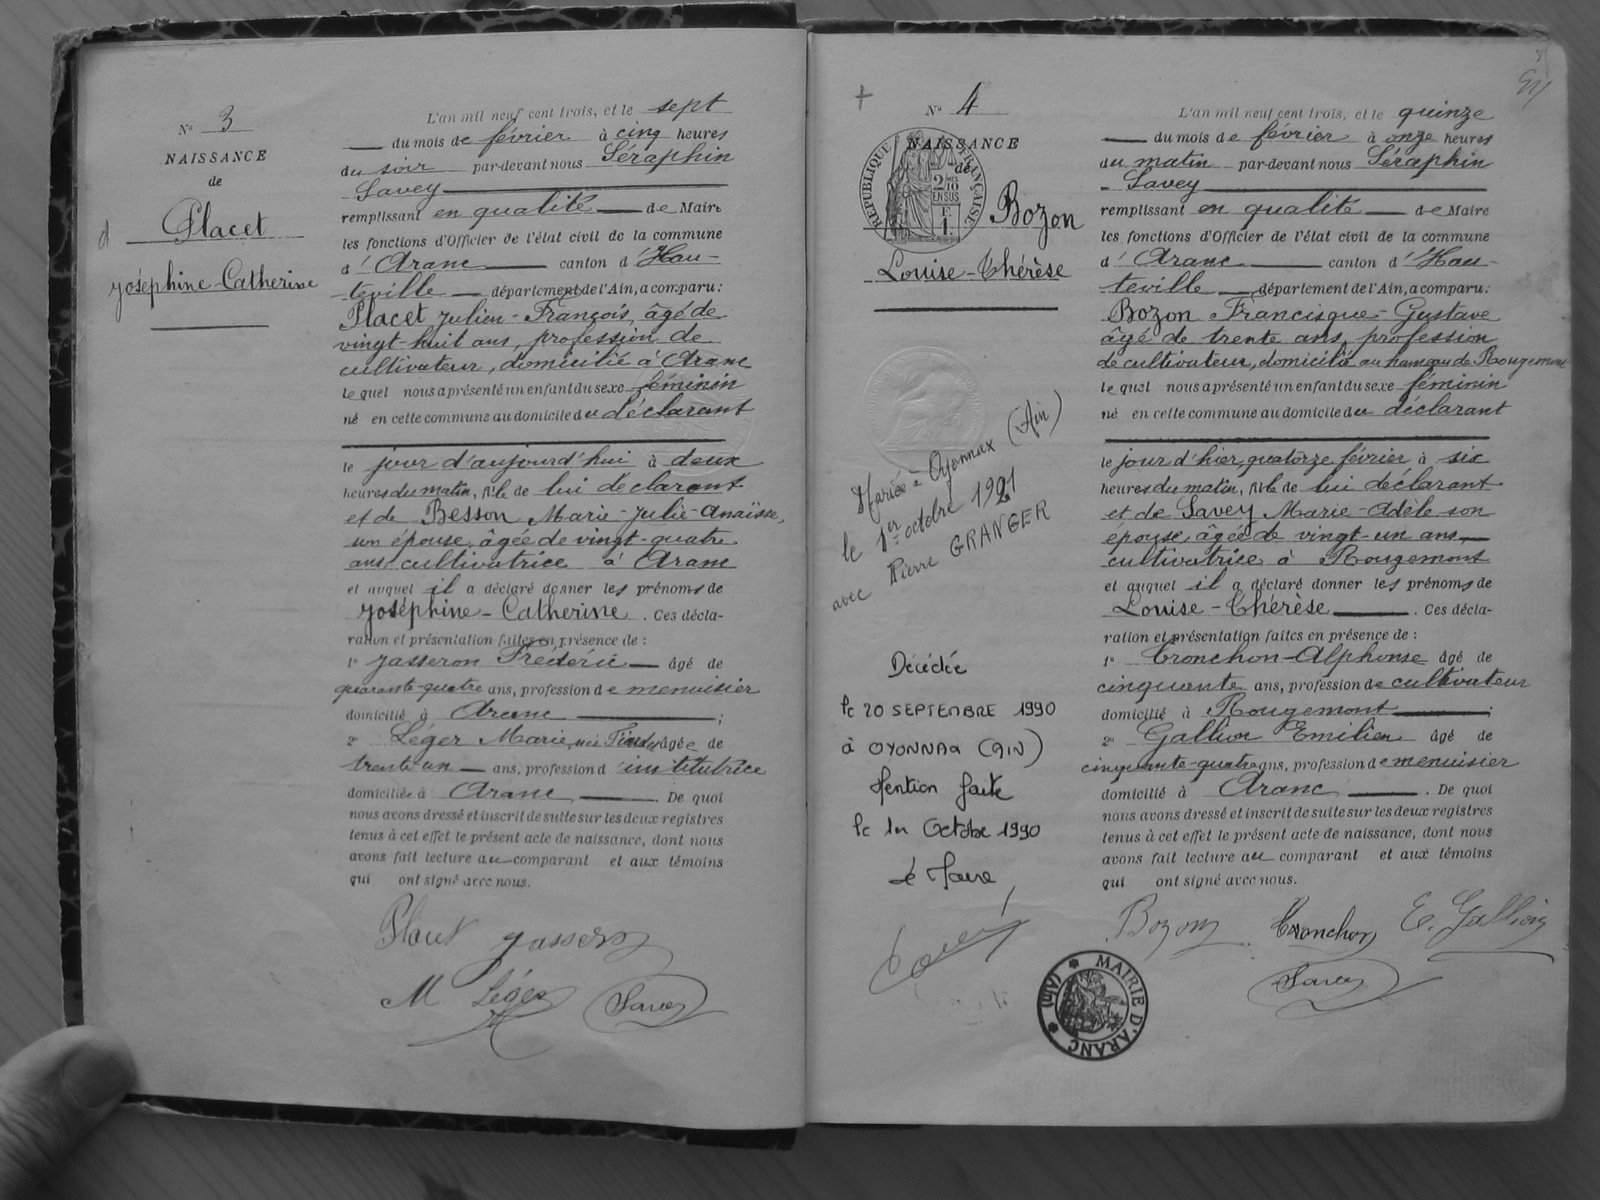 N° 3
NAISSANCE
de
Placet
Joséphine-Catherine
L'an mil neuf cent trois, et le sept
du mois de février à cinq heures
du soir par-devant nous Séraphin
Savey
remplissant en qualité de Maire
les fonctions d'Officier de l'état civil de la commune
d'Aranc canton d'Hau-
teville département de l'Ain, a comparu:
Placet Julien-François, âgé de
vingt-huit ans, profession de
cultivateur, domicilié à Aranc
lequel nous a présenté un enfant du sexe féminin
né en cette commune au domicile du déclarant
le jour d'aujourd'hui à deux
heures du matin, fille de lui déclarant
et de Besson Marie-Julie-Anaïse,
son épouse, âgée de vingt-quatre
ans cultivatrice à Aranc
et auquel il a déclaré donner les prénoms de
Joséphine-Catherine. Ces décla-
ration et présentation faites en présence de :
1° Jasseron Frédéric âgé de
quarante-quatre ans, profession de menuisier
domicilié à Aranc ;
2° Léger Marie, née âgée de
trente un ans, profession d'institutrice
domiciliée à Aranc. De quoi
nous avons dressé et inscrit de suite sur les deux registres
tenus à cet effet le présent acte de naissance, dont nous
avons fait lecture au comparant et aux témoins
qui ont signé avec nous.
Placet Jasseron
M Léger Savey
N° 4
NAISSANCE
de
RÉPUBLIQUE FRANÇAISE
2/10 EN SUS
1 F.
Bozon
Louise-Thérèse
Mariée à Oyonnax (Ain)
le 1er octobre 1921
avec Pierre GRANGER
Décédée
le 20 SEPTEMBRE 1990
à OYONNAX (AIN)
Mention faite
le 1er Octobre 1990
le Maire,
L'an mil neuf cent trois, et le quinze
du mois de février à onze heures
du matin par-devant nous Séraphin
Savey
remplissant en qualité de Maire
les fonctions d'Officier de l'état civil de la commune
d'Aranc canton d'Hau-
teville département de l'Ain, a comparu:
Bozon Francisque-Gustave
âgé de trente ans, profession
de cultivateur, domicilié au hameau de Rougemont
lequel nous a présenté un enfant du sexe féminin
né en cette commune au domicile du déclarant
le jour d'hier, quatorze février à six
heures du matin, fille de lui déclarant
et de Savey Marie-Adèle son
épouse, âgée de vingt-un ans,
cultivatrice à Rougemont
et auquel il a déclaré donner les prénoms de
Louise-Thérèse. Ces décla-
ration et présentation faites en présence de :
1° Tronchon-Alphonse âgé de
cinquante ans, profession de cultivateur
domicilié à Rougemont ;
2° Gallion Emilien âgé de
cinquante-quatre ans, profession de menuisier
domicilié à Aranc. De quoi
nous avons dressé et inscrit de suite sur les deux registres
tenus à cet effet le présent acte de naissance, dont nous
avons fait lecture au comparant et aux témoins
qui ont signé avec nous.
Bozon Tronchon E. Gallion
Savey
MAIRIE D'ARANC (AIN)